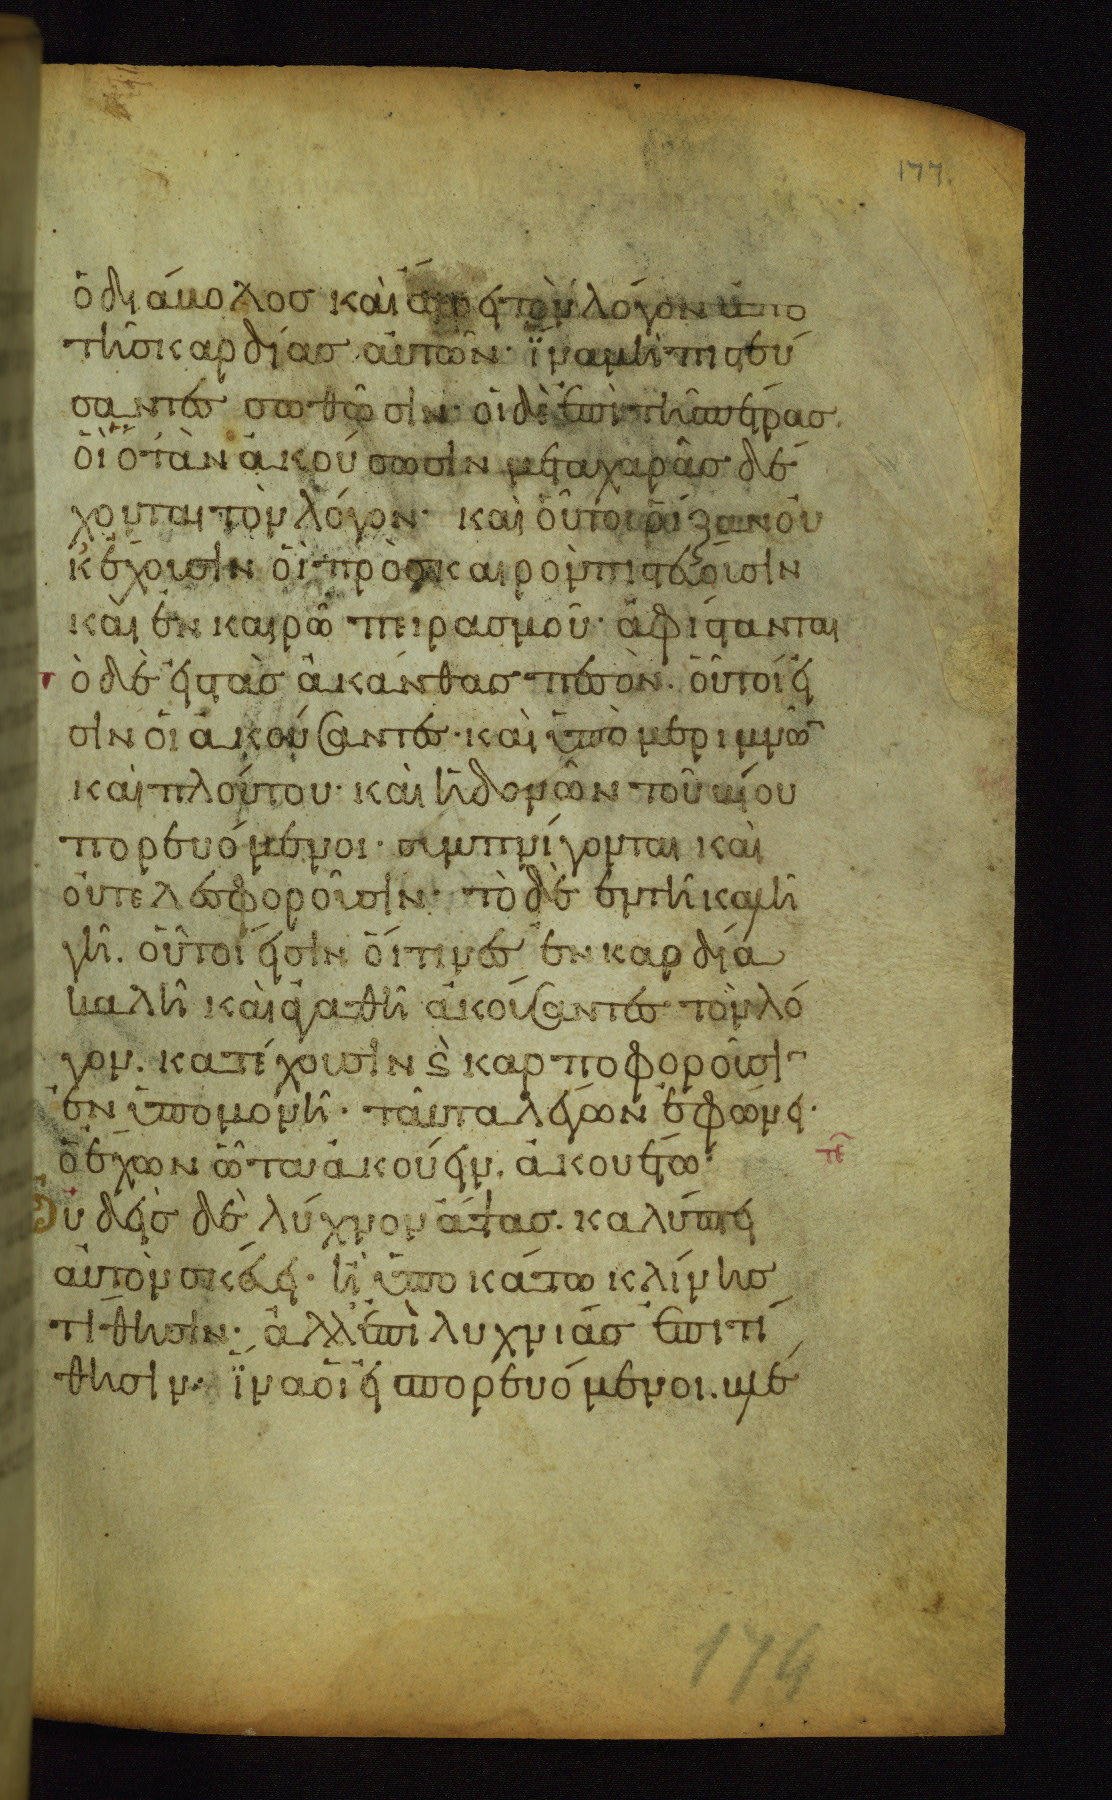 177.
ὁ διάβολος καὶ αἴρει τὸν λόγον ἀπο
τῆς καρδίας αὐτῶν· ἵνα μὴ πιστεύ
σαντες σωθῶσιν· οἱ δὲ ἐπὶ τῆς πέτρας.
οἳ ὁτὰν ἀκούσωσιν μετα χαρᾶς δέ
χονται τὸν λόγον· καὶ οὗτοι ῥίζαν οὐ
κ ἔχουσιν οἳ πρὸς καιρὸν πιστεύουσιν
καὶ ἐν καιρῶ πειρασμοῦ· ἀφίστανται
τ ὁ δὲ εἰς τὰς ἀκάνθας πεσὸν. οὗτοί εἰ
σιν οἱ ἀκούσαντες· καὶ ὑπὸ μεριμνῶν
καὶ πλούτου· καὶ ἡδονῶν τοῦ βίου
πορευόμενοι· συμπνίγονται καὶ
οὐ τελεσφοροῦσιν· τὸ δὲ ἐν τῆ καλῆ
γῆ. οὗτοί εἰσιν οἵτινες ἐν καρδία
καλῆ καὶ ἀγαθῆ ἀκούσαντες τὸν λό
γον. κατέχουσιν ϗ καρποφοροῦσιν
ἐν ὑπομονῆ· ταῦτα λέγων ἐφώνει·
ὁ ἔχων ὦτα ἀκούειν. ἀκουέτω· τε
Οὐδεὶς δὲ λύχνον ἅψας. καλύπτει
αὐτὸν σκέυει· ἢ ὑποκάτω κλίνης
τίθησιν· ἀλλ' ἐπὶ λυχνιάς ἐπιτί
θησιν· ἵνα οἱ εἰσπορευόμενοι. βλέ
174